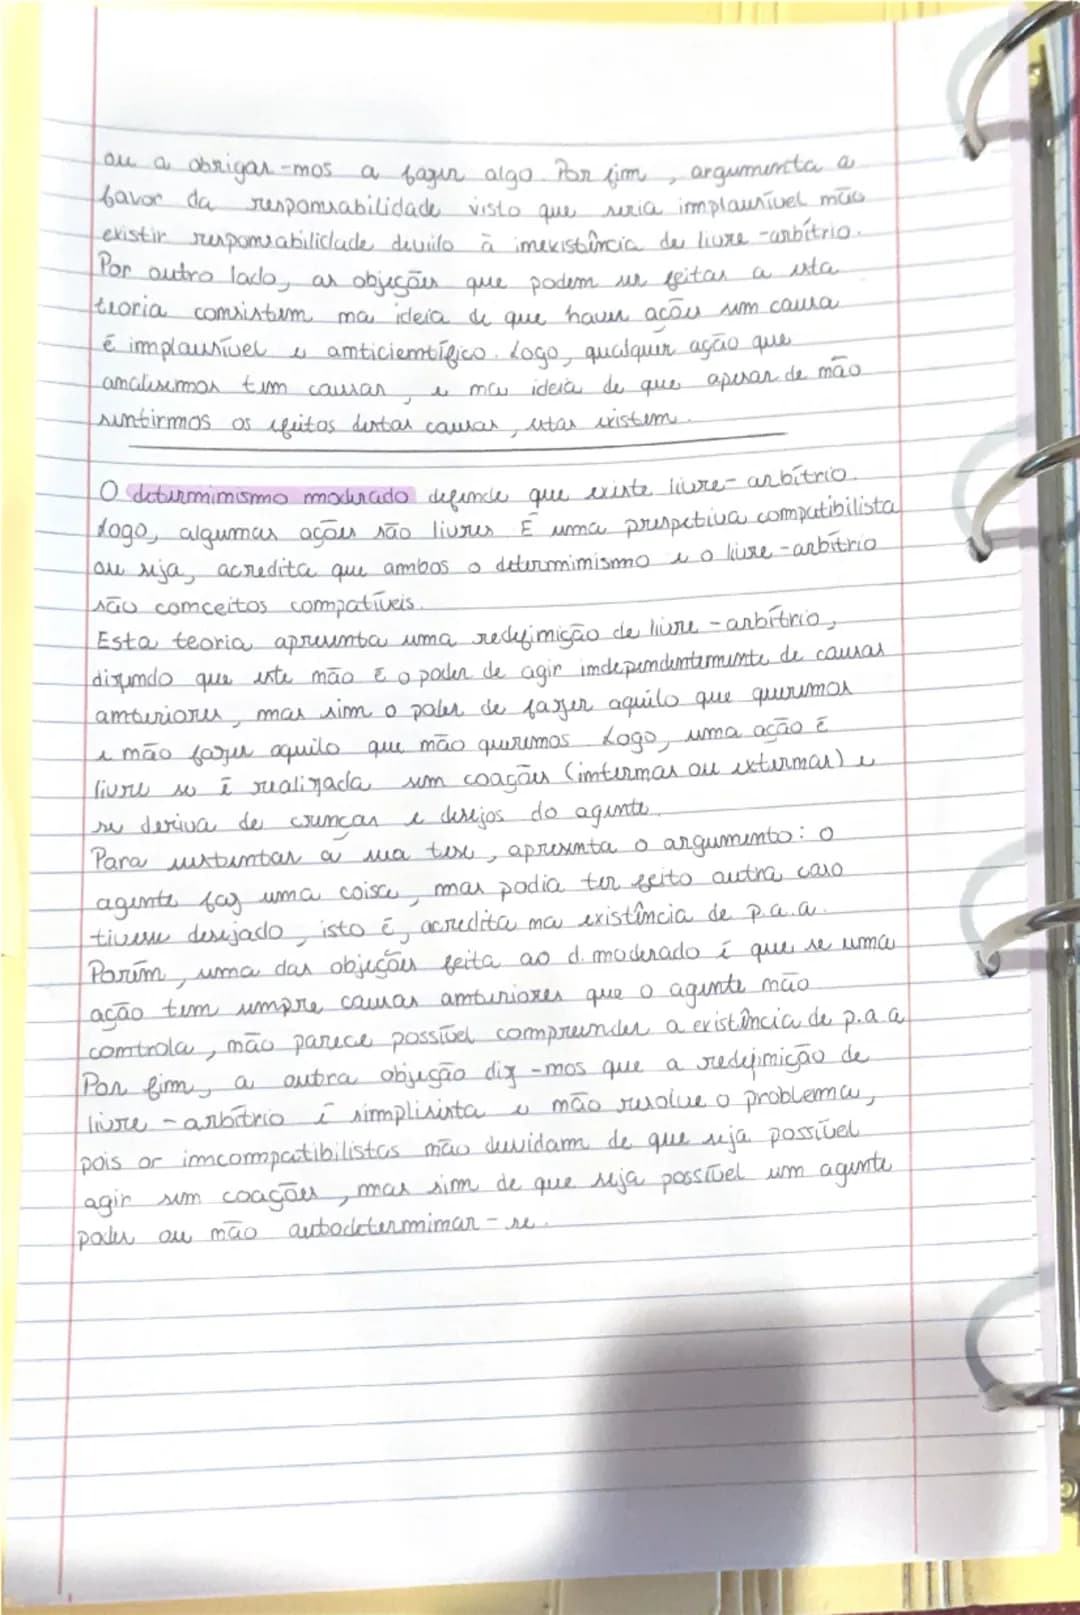 ou a obrigar-mos a fazer algo. Por fim, argumenta a
favor da responsabilidade visto que seria implausível não
existir responsabilidade devido à inexistência de livre-arbítrio.
Por outro lado, as objeções que podem ser feitas a esta
teoria consistem na ideia de que haver ações sem causa
é implausível e anticientífico. Logo, qualquer ação que
analisemos tem causas, e na ideia de que apesar de não
sentirmos os efeitos destas causas, estas existem.
O determinismo moderado defende que existe livre-arbítrio.
Logo, algumas ações são livres. É uma prespetiva compatibilista
ou seja, acredita que ambos o determinismo e o livre-arbítrio
são conceitos compatíveis.
Esta teoria apresenta uma redefinição de livre-arbítrio,
dizendo que este não é o poder de agir independentemente de causas
anteriores, mas sim o poder de fazer aquilo que queremos
e não fazer aquilo que não queremos. Logo, uma ação é
livre se é realizada sem coações (internas ou externas) e
se deriva de crenças e desejos do agente.
Para sustentar a sua tese, apresenta o argumento: o
agente faz uma coisa, mas podia ter feito outra caso
tivesse desejado, isto é, acredita na existência de p.a.a.
Porém, uma das objeções feita ao d. moderado é que se uma
ação tem sempre causas anteriores que o agente não
controla, não parece possível compreender a existência de p.a.a
Por fim, a outra objeção diz-nos que a redefinição de
livre-arbítrio é simplisista e não resolve o problema,
pois os incompatibilistas não duvidam de que seja possível
agir sem coações, mas sim de que seja possível um agente
poder ou não autodeterminar-se.